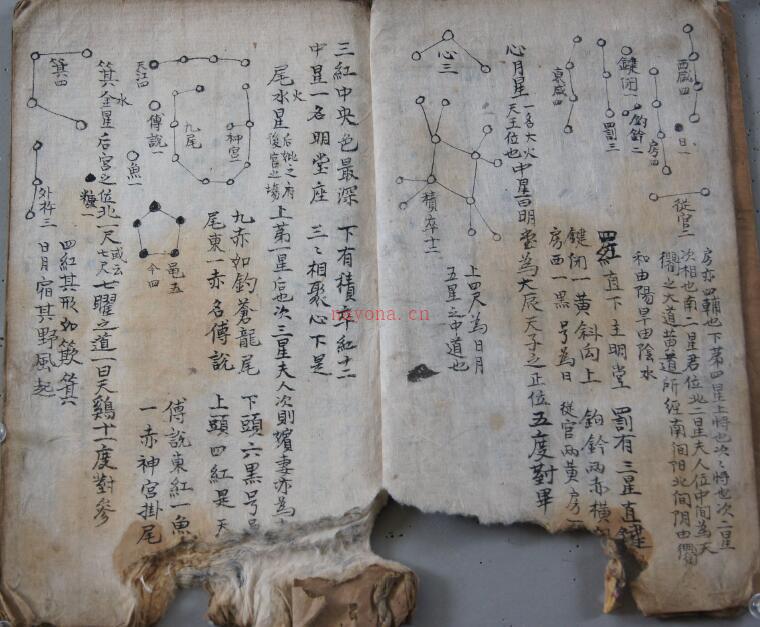 西咸四
日一
房四
鍵閉一
鈎鈐二
罰三
東咸四
從官二
心三
積卒十二
房亦四輔也下第四星上將也次次將也次二星
次相也南一星君位北二星夫人位中間為天
衢之大道黃道所經南間陽北間陰由
和由陽旱由陰水
四紅直下主明堂
罰有三星直鍵
鍵閉一黃斜向上
鉤鈐兩赤橫
房西一黑号為日
從官兩黃房
心月星
一名大火
天王位也
中星曰明堂為大辰天子之正位
五度對畢
上四尺為日月
五星之中道也
三紅中央色最深
下有積卒紅十二
中星一名明堂座
三々相聚心下是
尾水星
火
后妃之府
後宮之場
上第一星后也次三星夫人次則嬪妻亦為
九赤如鈎蒼龍尾
下頭六黑号
尾東一赤名傳說
上頭四紅是天
傳說東紅一魚
一赤神宮掛尾
天江四
傳說一
魚一
九尾
神宮一
龜五
箕四
糠一
外杵三
箕金星后宮之位北一尺
水
或云
七尺
七曜之道一曰天鷄十一度對參
四紅其形如簸箕
日月宿其野風起
ngyona.cn